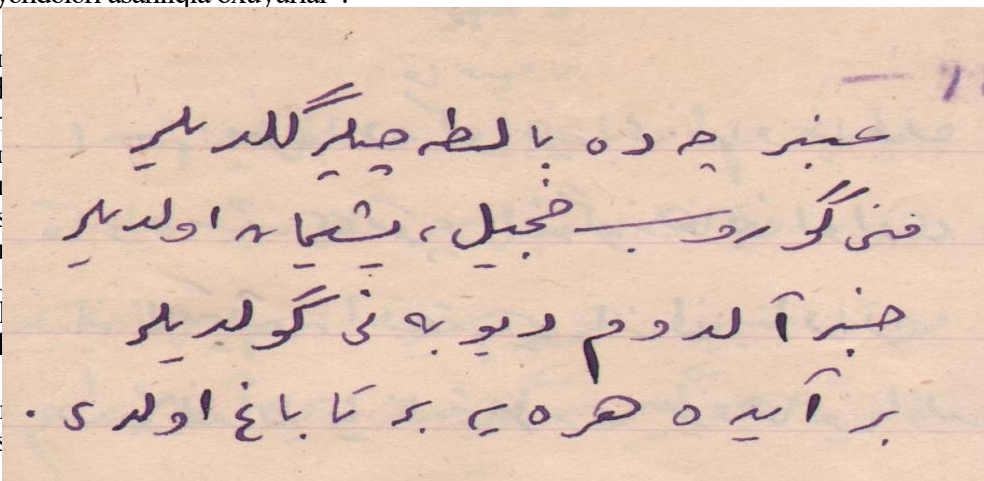 عنبر چه ده بالطه چیلر گلدیلر
منی گوروب خجیل، پشیمان اولدیلر
خبر آلدوم دیو به نی گولدیلر
بر آیده هره یه بر تا باغ اولدی.